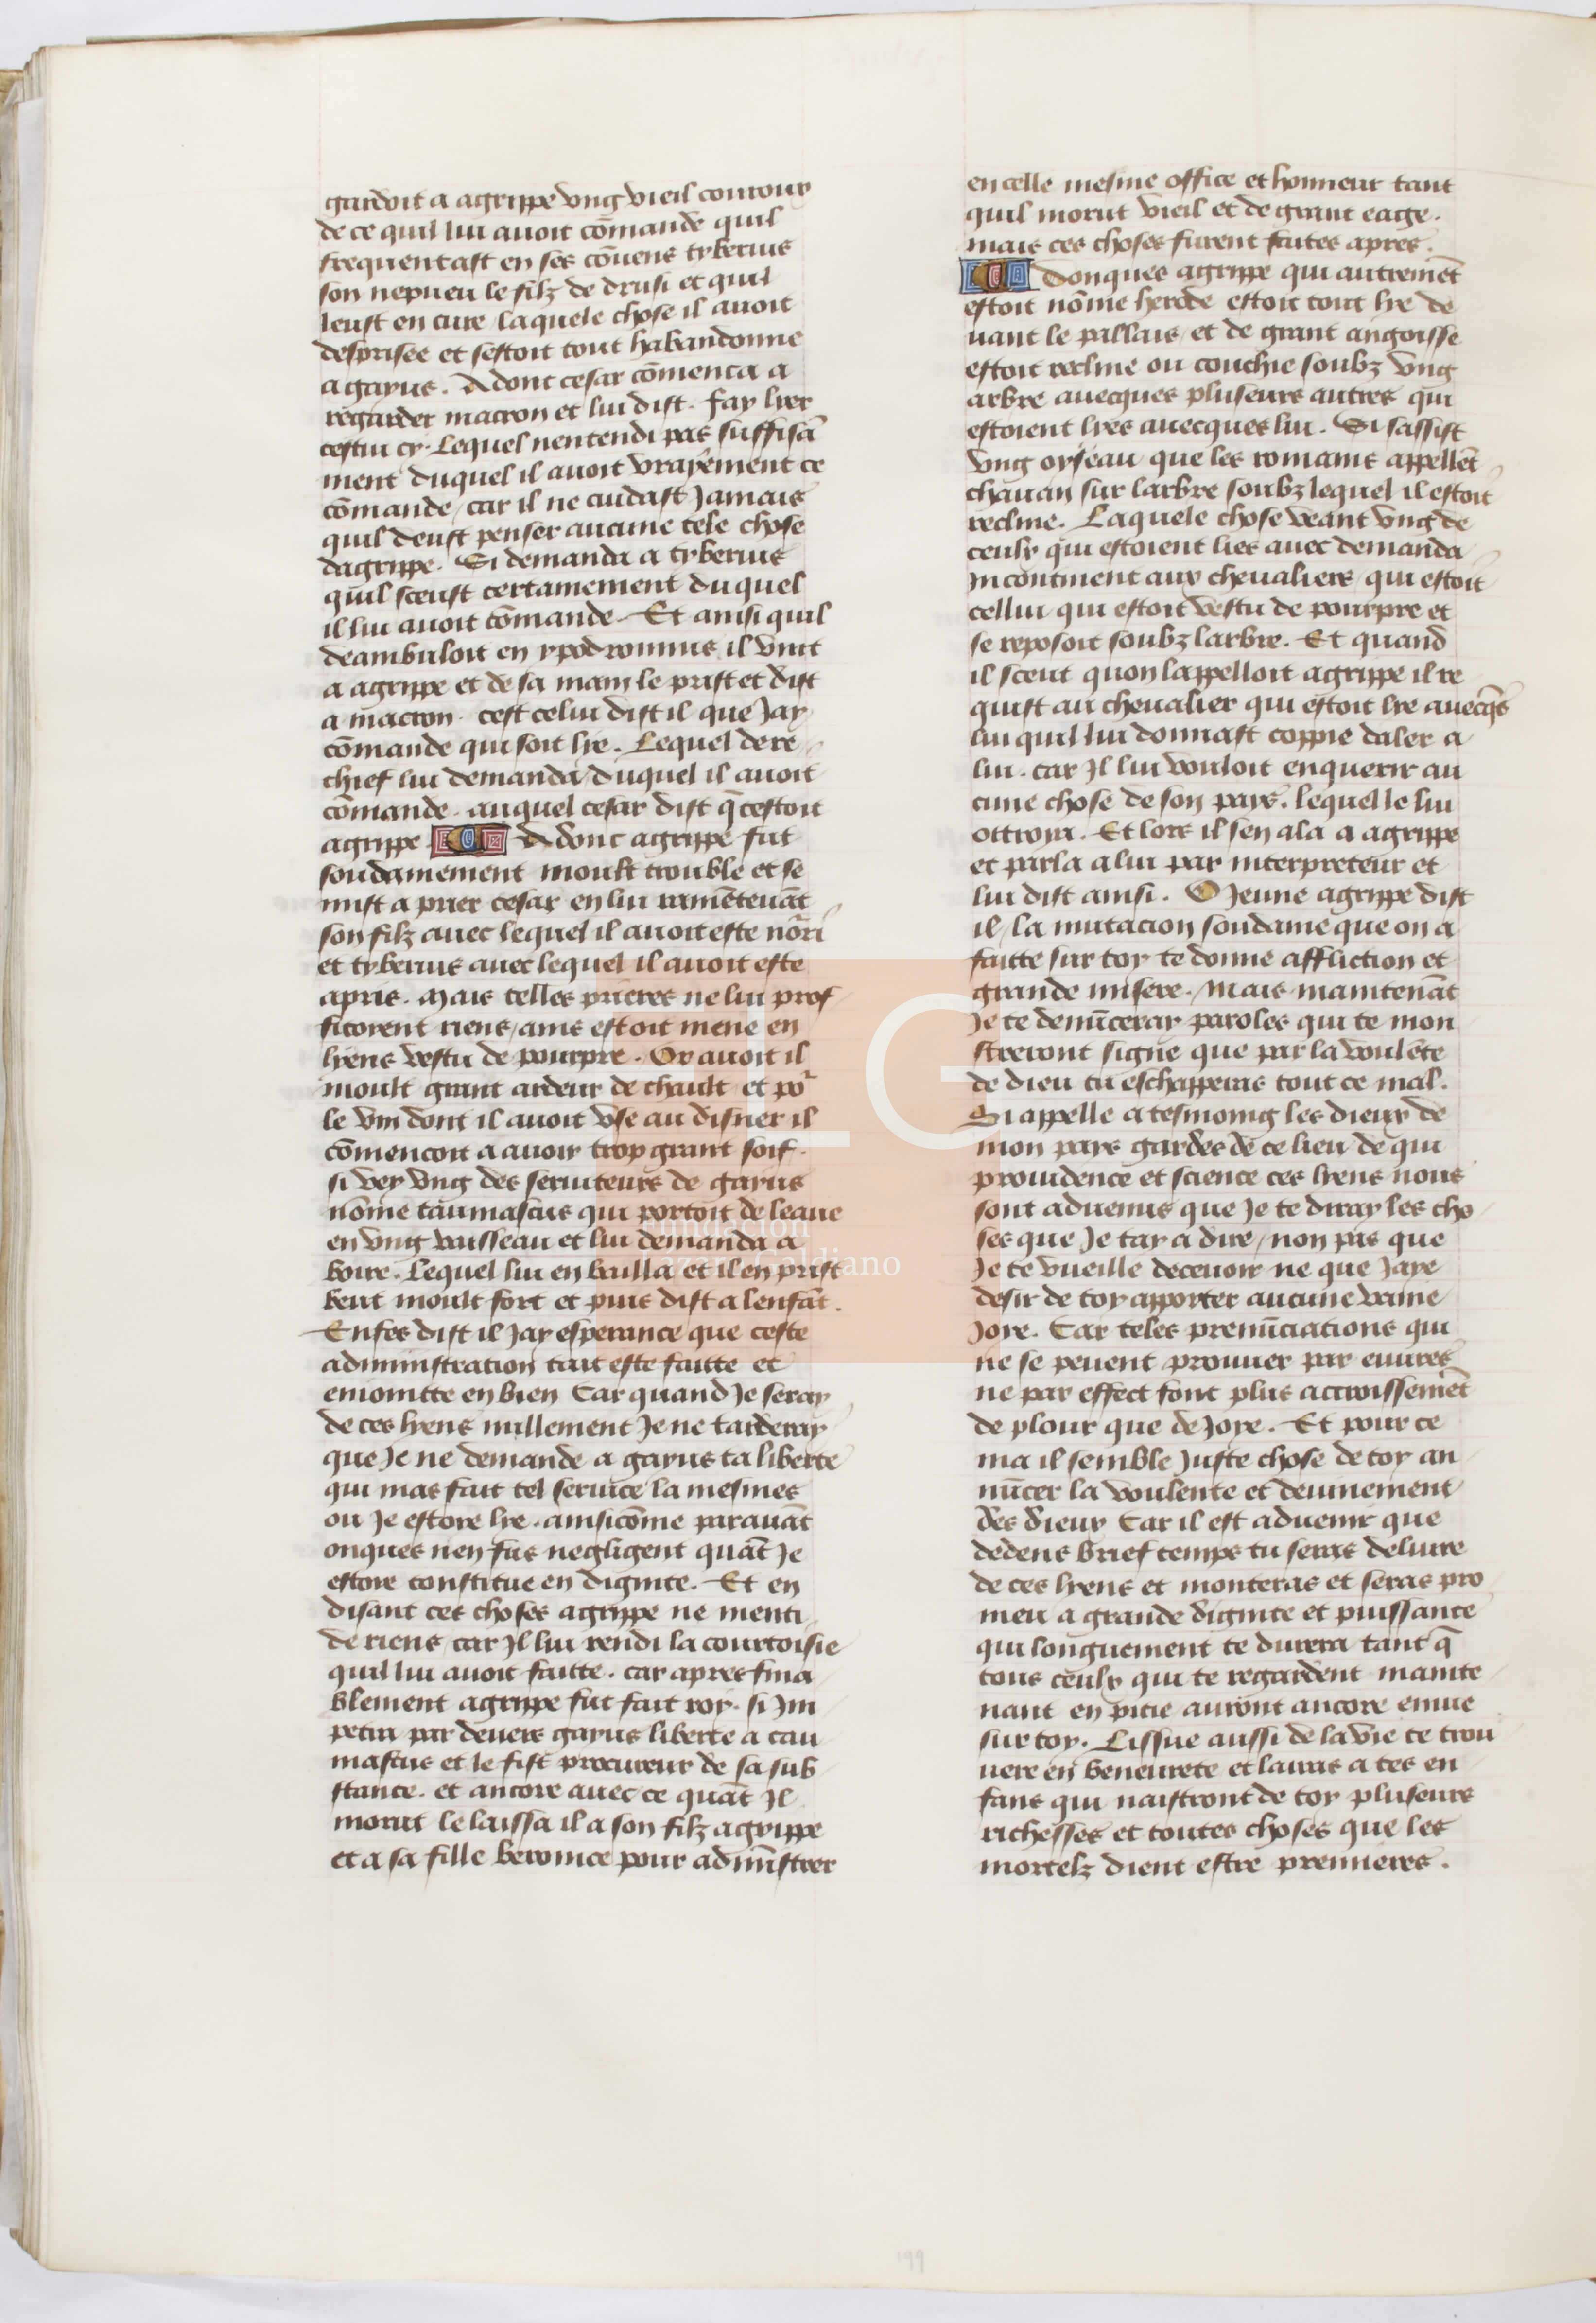 gardoit a agrippe vng vieil courour
de ce quil lui auoit cōmande quil
frequentast en ses cōuens tyberius
son nepueu le filz de drusi et quil
leust en cure / laquele chose il auoit
desprisee et sestoit tout habandonne
a gayus . Adont cesar cōmenca a
regarder macron et lui dist . fay lier
cestui cy . Lequel nentendi pas suffisā
ment duquel il auoit vrayement ce
cōmande / car il ne cuidast Jamais
quil deust penser aucune tele chose
dagrippe . Si demanda a tyberius
quil sceust certainement du quel
il lui auoit cōmande . Et ainsi quil
deambuloit en ypodromus il vint
a agrippe et de sa main le prist et dist
a macron . cest celui dist il que Jay
cōmande qui soit lie . Lequel dere
chief lui demanda / duquel il auoit
cōmande . auquel cesar dist q̄ cestoit
agrippe . Adonc agrippe fut
soudainement moult trouble et se
mist a prier cesar en lui ramētenāt
son filz auec lequel il auoit este nōri
et tyberius auec lequel il auoit este
apris . Mais telles prieres ne lui prof
fitorent riens / ains estoit mene en
lyens vestu de pourpre . Or auoit il
moult grant ardeur de chault et po᷑
le vin dont il auoit vse au disner il
cōmencoit a auoir trop grant soif .
si vey vng des seruiteurs de gayus
nōme taumascus qui portoit de leaue
en vng vaisseau et lui demanda a
boire . Lequel lui en bailla et il en prist
beut moult fort et puis dist a lenfāt .
Enfes dist il Jay esperance que ceste
administration tait este faitte et
eniointte en bien Car quand Je seray
de ces lyens nullement Je ne tarderay
que Je ne demande a gayus ta liberte
qui mas fait tel seruice la mesmes
ou Je estore lie . ainsicōme parauāt
onques nen fus negligent quāt Je
estore constitue en dignite . Et en
disant ces choses agrippe ne menti
de riens / car Jl lui rendi la courtoisie
quil lui auoit faitte . car apres fina
blement agrippe fut fait roy . si Jm
petra par deuers gayus liberte a tau
mascus et le fist procureur de sa sub
stance . et ancore auec ce quāt Jl
morut le laissa il a son filz agrippe
et a sa fille beronice pour admīstrer
en celle mesme office et honneur tant
quil morut vieil et de grant eage .
mais ces choses furent faites apres .
Donques agrippe qui autremēt
estoit nōme herode estoit tout lie de
uant le pallais / et de grant angoisse
estoit recline ou couchie soubz vng
arbre auecques pluseurs autres qui
estoient lies auecques lui . Si sassist
vng oyseau que les romains appellēt
chauan sur larbre soubz lequel il estoit
recline . Laquele chose veant vng de
ceulx qui estoient lies auec demanda
Jncontinent aux cheualiers qui estoit
cellui qui estoit vestu de pourpre et
se reposoit soubz larbre . Et quand
il sceut quon lappelloit agrippe il re
quist au cheualier qui estoit lie auecq̄s
lui quil lui donnast coppie daler a
lui . car Jl lui vouloit enquerir au
cune chose de son pays . lequel le lui
ottroya . Et lors il sen ala a agrippe
et parla a lui par interpreteur et
lui dist ainsi . O Jeune agrippe dist
il / la mutacion soudaine que on a
faitte sur toy te donne affliction et
grande misere . Mais maintenāt
Je te denūceray paroles qui te mon
streront signe que par la voulēte
de dieu tu eschapperas tout ce mal .
Si appelle a tesmoing les dieux de
mon pays gardes de ce lieu de qui
prouidence et science ces lyens nous
sont aduenus que Je te diray les cho
ses que Je tay a dire / non pas que
Je te vueille deceuoir ne que Jaye
desir de toy apporter aucune vaine
Joye . Car teles prenūciations qui
ne se peuent prouuer par euures
ne par effect font plus accroissemēt
de plour que de Joye . Et pour ce
ma il semble Juste chose de toy an
nūcer la voulente et deuinement
des dieux Car il est aduenir que
dedens brief temps tu seras deliure
de ces lyens et monteras et seras pro
meu a grande dignite et puissance
qui longuement te durera tant q̄
tous ceulx qui te regardent mainte
nant en pitie auront ancore enuie
sur toy . Lissue aussi de la vie te trou
uere en beneurete et lairas a tes en
fans qui naistront de toy pluseurs
richesses et toutes choses que les
mortelz dient estre premieres .
199